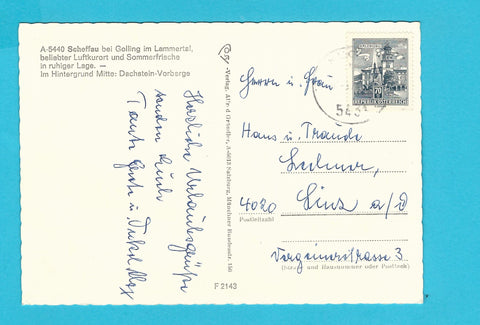 A-5440 Scheffau bei Golling im Lammertal,
beliebter Luftkurort und Sommerfrische
in ruhiger Lage. —
Im Hintergrund Mitte: Dachstein-Vorberge
Herzliche Urlaubsgrüße
senden Euch
Tante und Onkel Max
-Verlag, A-5013 Salzburg, Münchner Bundesstr. 150
F 2143
REPUBLIK ÖSTERREICH
70
543
Herrn u. Frau
Hans u. Traude
4020 Linz a/D
Postleitzahl
3
(Straße und Hausnummer oder Postfach)